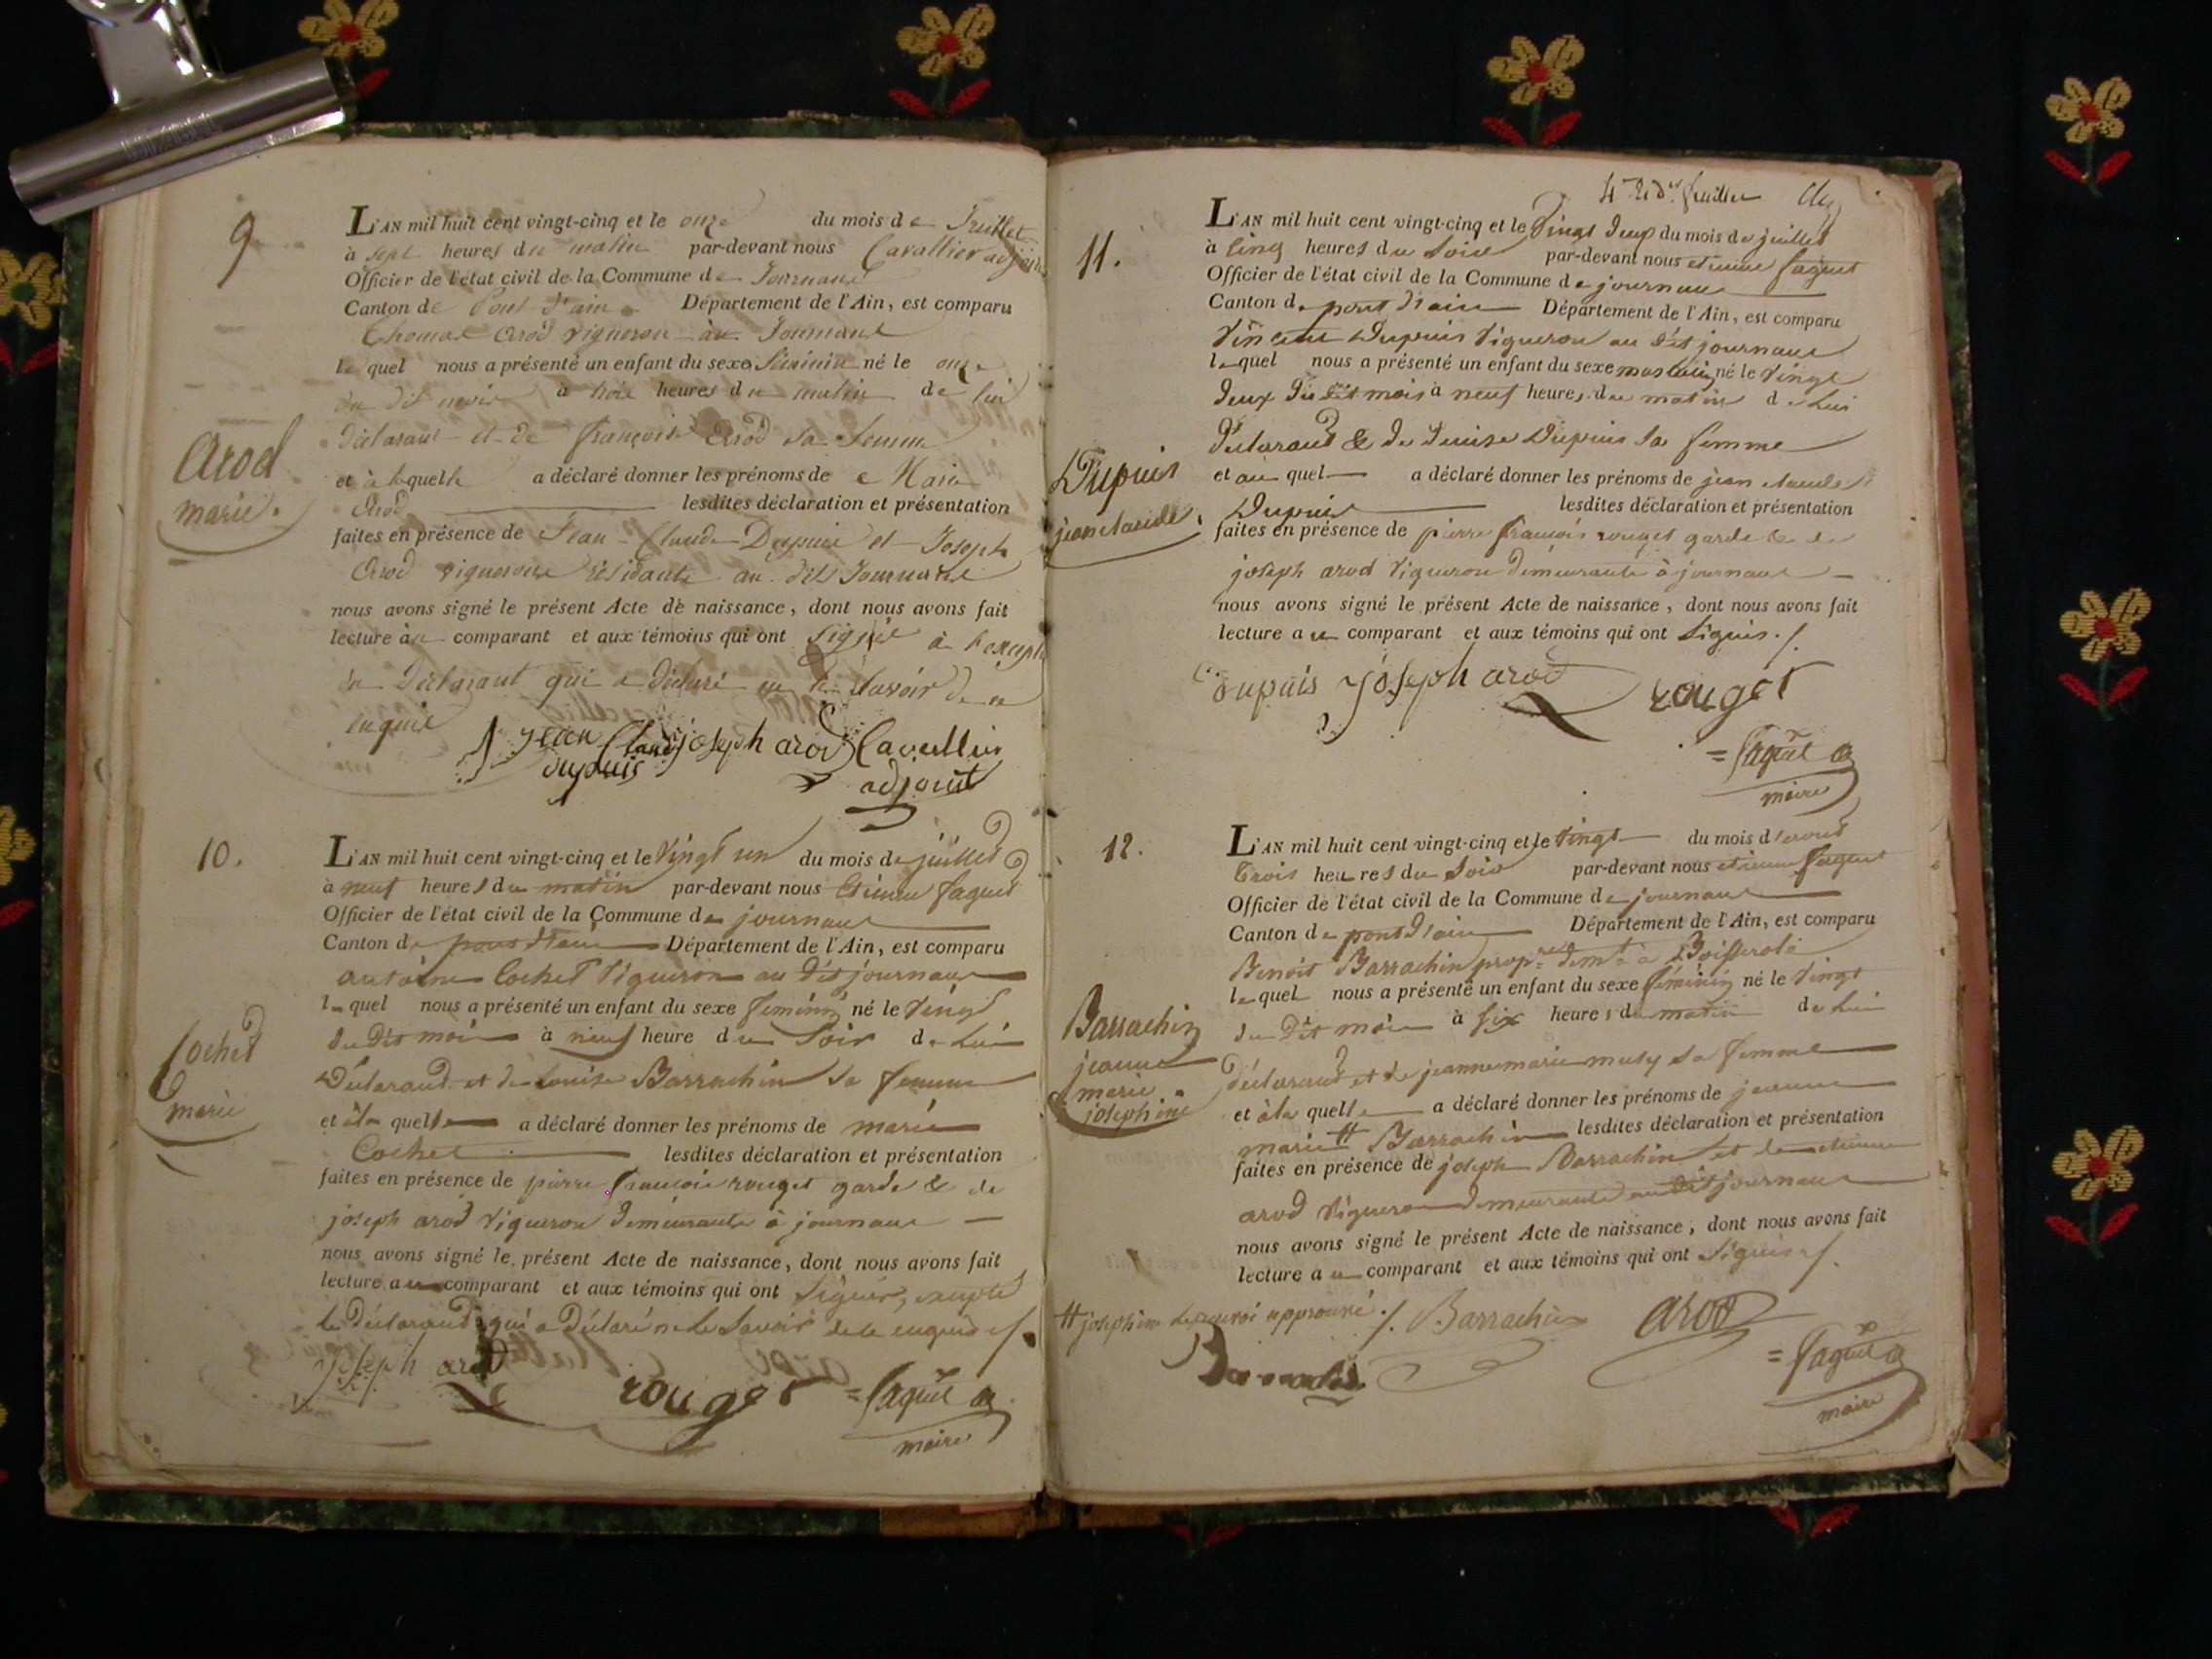 9
L'AN mil huit cent vingt-cinq et le onze du mois de Juillet
à sept heures du matin par-devant nous Cavallier adjoint
Officier de l'état civil de la Commune de Journans
Canton de Pont d'ain Département de l'Ain, est comparu
Thomas Arod vigneron au Journans
le quel nous a présenté un enfant du sexe féminin né le onze
du dit mois à trois heures du matin de lui
Arod
marie.
déclarant et de françoise Arod sa femme
et à laquelle a déclaré donner les prénoms de Marie
Arod lesdites déclaration et présentation
faites en présence de Jean-Claude Dupuis et Joseph
Arod vignerons résidants au dit Journans
nous avons signé le présent Acte de naissance, dont nous avons fait
lecture au comparant et aux témoins qui ont signé à l'except
du Déclarant qui a déclaré ne le savoir de ce
enquis
jean Claude joseph arod Cavallier
dupuis adjoint
10.
L'AN mil huit cent vingt-cinq et le Vingt un du mois de juillet
à neuf heures du matin par-devant nous Etienne faguet
Officier de l'état civil de la Commune de journans
Canton de pont d'ain Département de l'Ain, est comparu
antoine Cochet Vigneron au dit journans
lequel nous a présenté un enfant du sexe feminin né le Vingt
du dit mois à neuf heure du Soir de Lui
Cochet
marie
Déclarand et de Louise Barrachin sa femme
et à la quelle a déclaré donner les prénoms de marie
Cochet lesdites déclaration et présentation
faites en présence de pierre françois rouget garde & de
joseph arod Vigneron demeurants à journans
nous avons signé le présent Acte de naissance, dont nous avons fait
lecture au comparant et aux témoins qui ont Signés, excepté
le Déclarand qui a Déclaré ne le Savoir de ce enquis ./.
joseph arod rouget = faguet
maire
4me & der feuillet
11.
L'AN mil huit cent vingt-cinq et le Vingt deux du mois de juillet
à Cinq heures du Soir par-devant nous etienne faguet
Officier de l'état civil de la Commune de journans
Canton de pont d'ain Département de l'Ain, est comparu
Vincent Dupuis Vigneron au dit journans
lequel nous a présenté un enfant du sexe masculin né le Vingt
deux du dit mois à neuf heures du matin de Lui
déclarand & de denise Dupuis sa femme
Dupuis
jean claude.
et au quel a déclaré donner les prénoms de jean claude
Dupuis lesdites déclaration et présentation
faites en présence de pierre françois rouget garde & de
joseph arod Vigneron demeurants à journans
nous avons signé le présent Acte de naissance, dont nous avons fait
lecture au comparant et aux témoins qui ont Signés ./.
dupuis joseph arod rouget
= faguet
maire
12.
L'AN mil huit cent vingt-cinq et le Vingt du mois d'aoust
Trois heures du Soir par-devant nous etienne faguet
Officier de l'état civil de la Commune de journans
Canton de pont d'ain Département de l'Ain, est comparu
Benoit Barrachin propre demt à
lequel nous a présenté un enfant du sexe féminin né le Vingt
du dit mois à Six heures du matin de Lui
Barrachin
jeanne
marie
josephine
déclarand et de jeanne marie musy sa femme
et à la quelle a déclaré donner les prénoms de jeanne
marie # Barrachin lesdites déclaration et présentation
faites en présence de joseph Barrachin et de etienne
arod Vigneron demeurants au dit journans
nous avons signé le présent Acte de naissance, dont nous avons fait
lecture au comparant et aux témoins qui ont Signés ./.
# josephine le renvoi approuvé ./. Barrachin arod
= faguet
maire